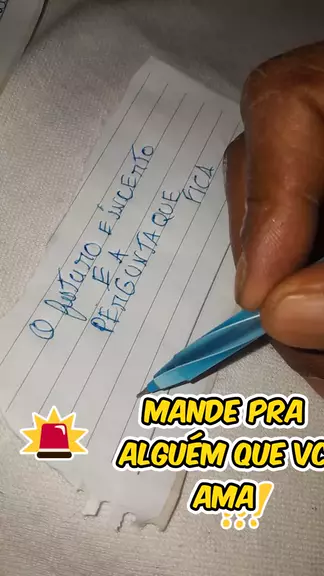 O futuro é incerto
E A
PERGUNTA QUE
FICA
MANDE PRA
ALGUÉM QUE VC
AMA!